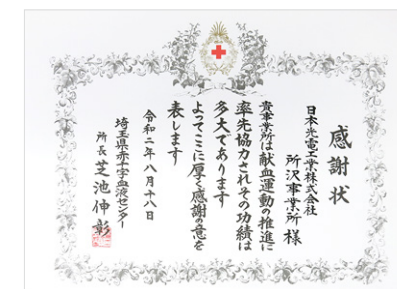 感謝状
日本光電工業株式会社
所沢事業所 様
貴事業所は献血運動の推進に
率先協力されその功績は
多大であります
よってここに厚く感謝の意を
表します
令和二年八月十八日
埼玉県赤十字血液センター
所長 芝池伸彰